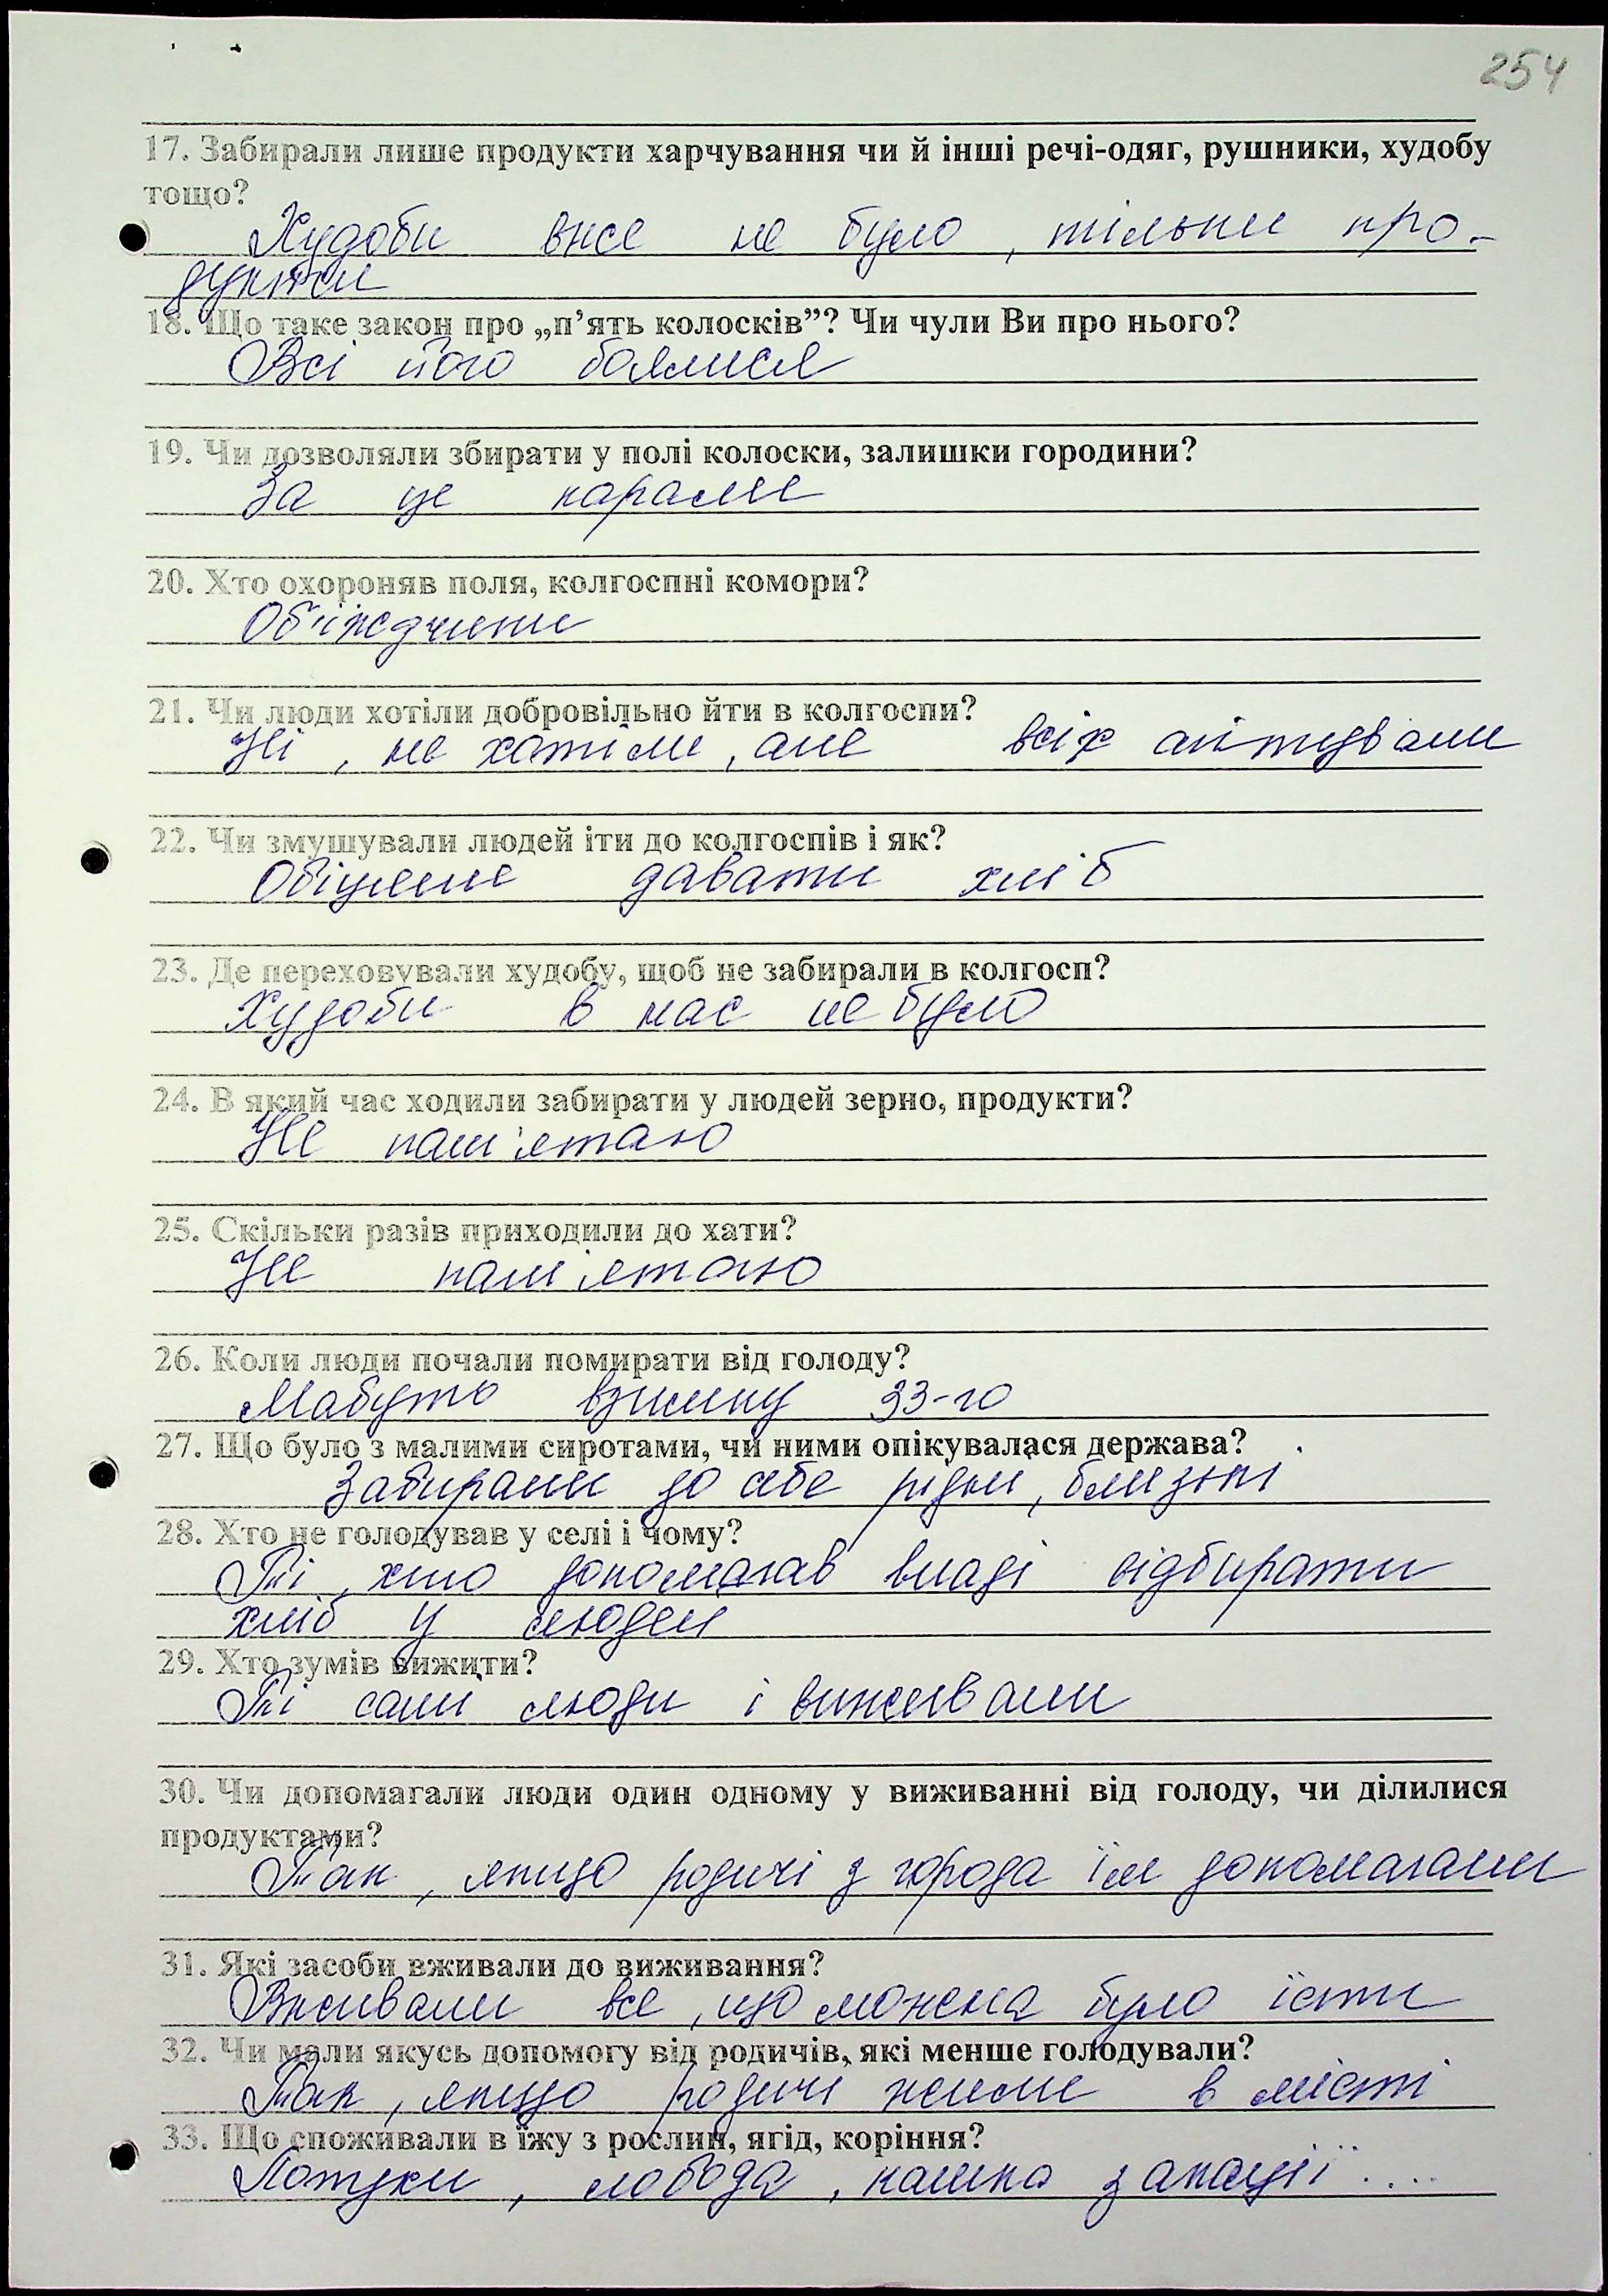 254
17. Забирали лише продукти харчування чи й інші речі-одяг, рушники, худобу
тощо?
Худоби вже не було, тільки про-
дукти
18. Що таке закон про „п’ять колосків”? Чи чули Ви про нього?
Всі його боялися
19. Чи дозволяли збирати у полі колоски, залишки городини?
За це карали
20. Хто охороняв поля, колгоспні комори?
Об'їждчики
21. Чи люди хотіли добровільно йти в колгоспи?
Ні, не хотіли, але всіх агітували
22. Чи змушували людей іти до колгоспів і як?
Обіцяли давати хліб
23. Де переховували худобу, щоб не забирали в колгосп?
Худоби в нас не було
24. В який час ходили забирати у людей зерно, продукти?
Не пам'ятаю
25. Скільки разів приходили до хати?
Не пам'ятаю
26. Коли люди почали помирати від голоду?
Мабуть взимку 33-го
27. Що було з малими сиротами, чи ними опікувалася держава?
Забирали до себе рідні, близькі
28. Хто не голодував у селі і чому?
Ті, хто допомагав владі відбирати
хліб у людей
29. Хто зумів вижити?
Ті самі люди і виживали
30. Чи допомагали люди один одному у виживанні від голоду, чи ділилися
продуктами?
Так, якщо родичі з города їм допомагали
31. Які засоби вживали до виживання?
Вживали все, що можна було їсти
32. Чи мали якусь допомогу від родичів, які менше голодували?
Так, якщо родичі жили в місті
33. Що споживали в їжу з рослин, ягід, коріння?
лобода, кашка з акації ....